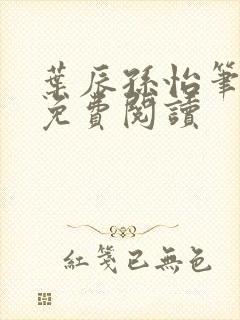 葉辰孫怡筆
免費閱讀
紅箋已無色